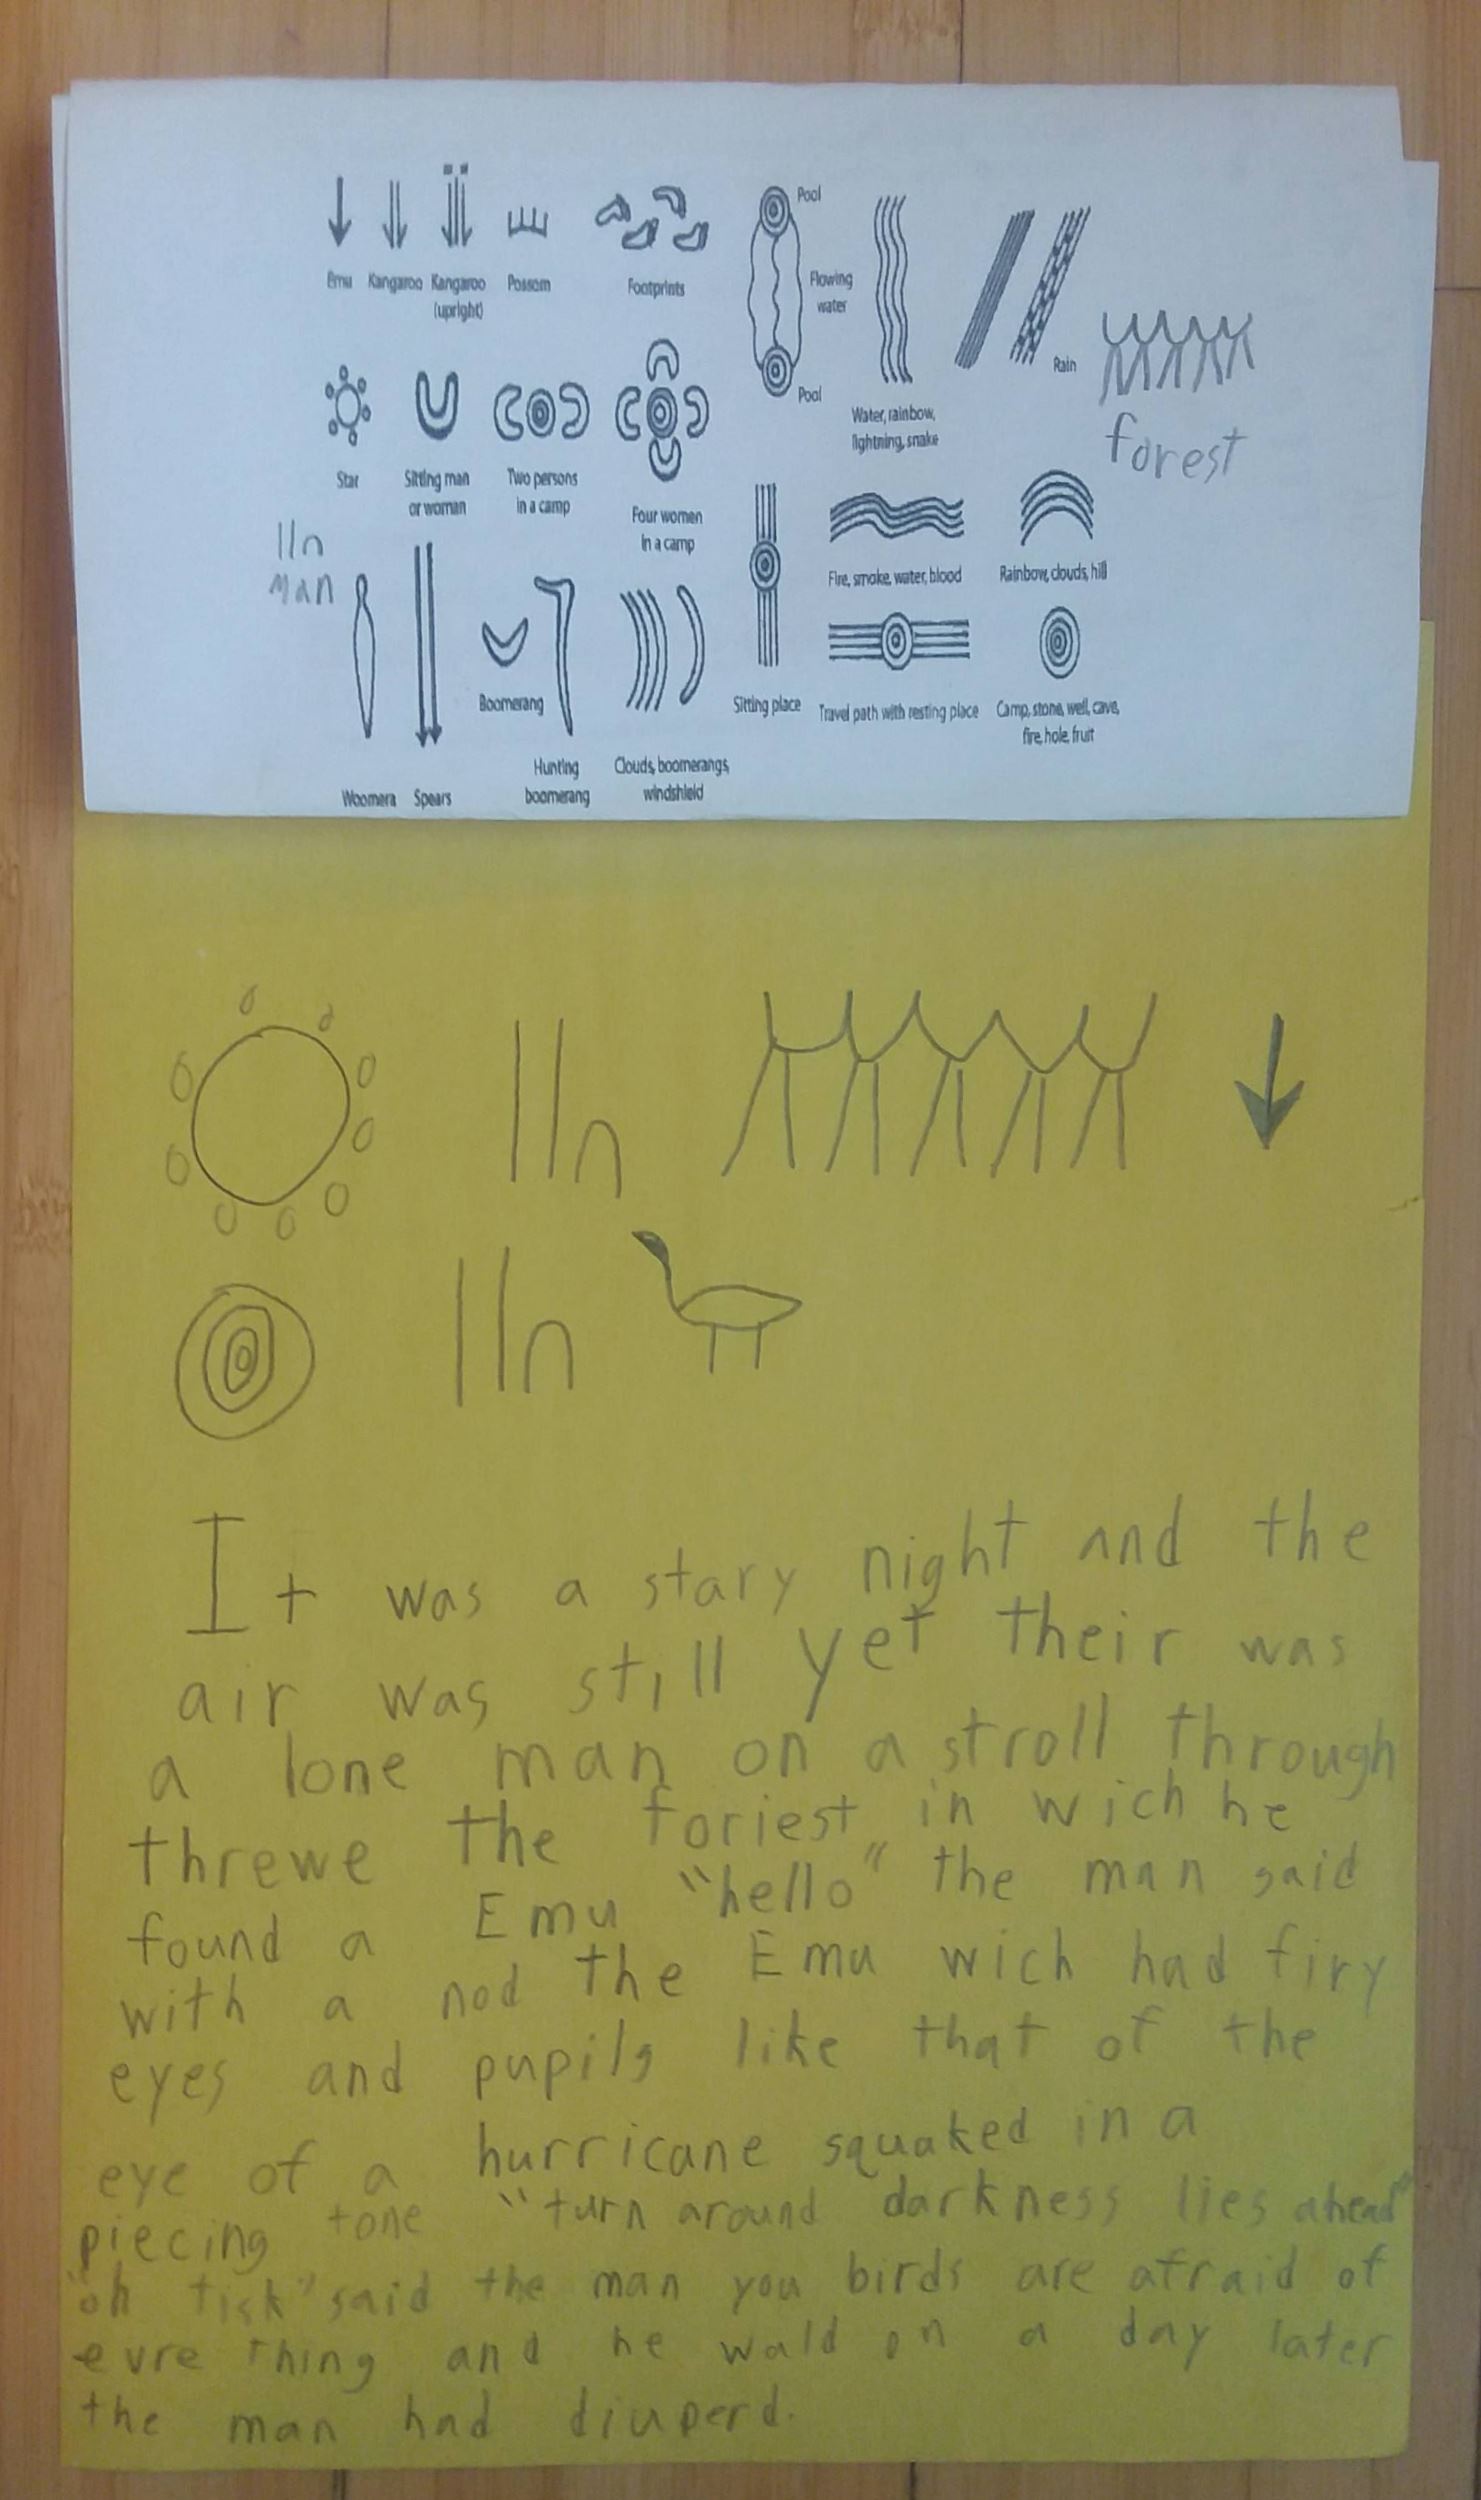 Emu Kangaroo Kangaroo Possom Footprints
(upright)
Pool
Flowing
water
Pool
Water, rainbow,
lightning, snake
Rain
forest
Star Sitting man Two persons Four women
or woman in a camp in a camp
lln
man
Woomera Spears Boomerang Hunting Clouds, boomerangs,
boomerang windshield
Sitting place
Fire, smoke, water, blood
Rainbow, clouds, hill
Travel path with resting place
Camp, stone, well, cave,
fire, hole, fruit
It was a stary night and the
air was still yet their was
a lone man on a stroll through
threwe the foriest in wich he
found a Emu "hello" the man said
with a nod the Emu wich had firy
eyes and pupils like that of the
eye of a hurricane squaked in a
piecing tone "turn around darkness lies ahead"
"oh tisk" said the man you birds are afraid of
evre thing and he wald on a day later
the man had diuperd.